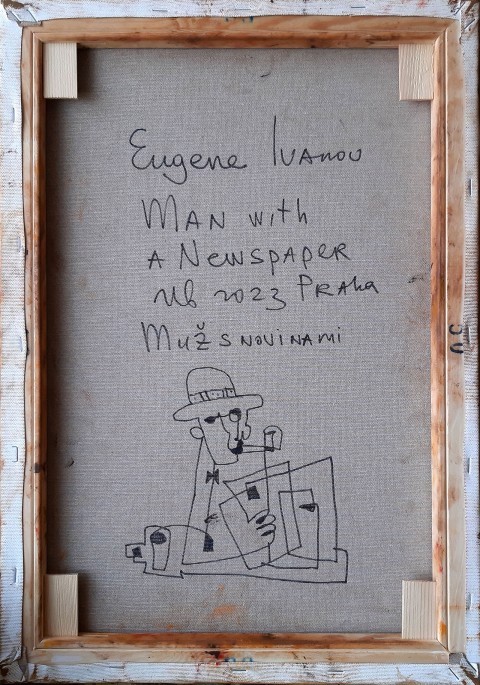 Eugene Ivanov
Man with
a Newspaper
2023 Praha
Muž s novinami
50